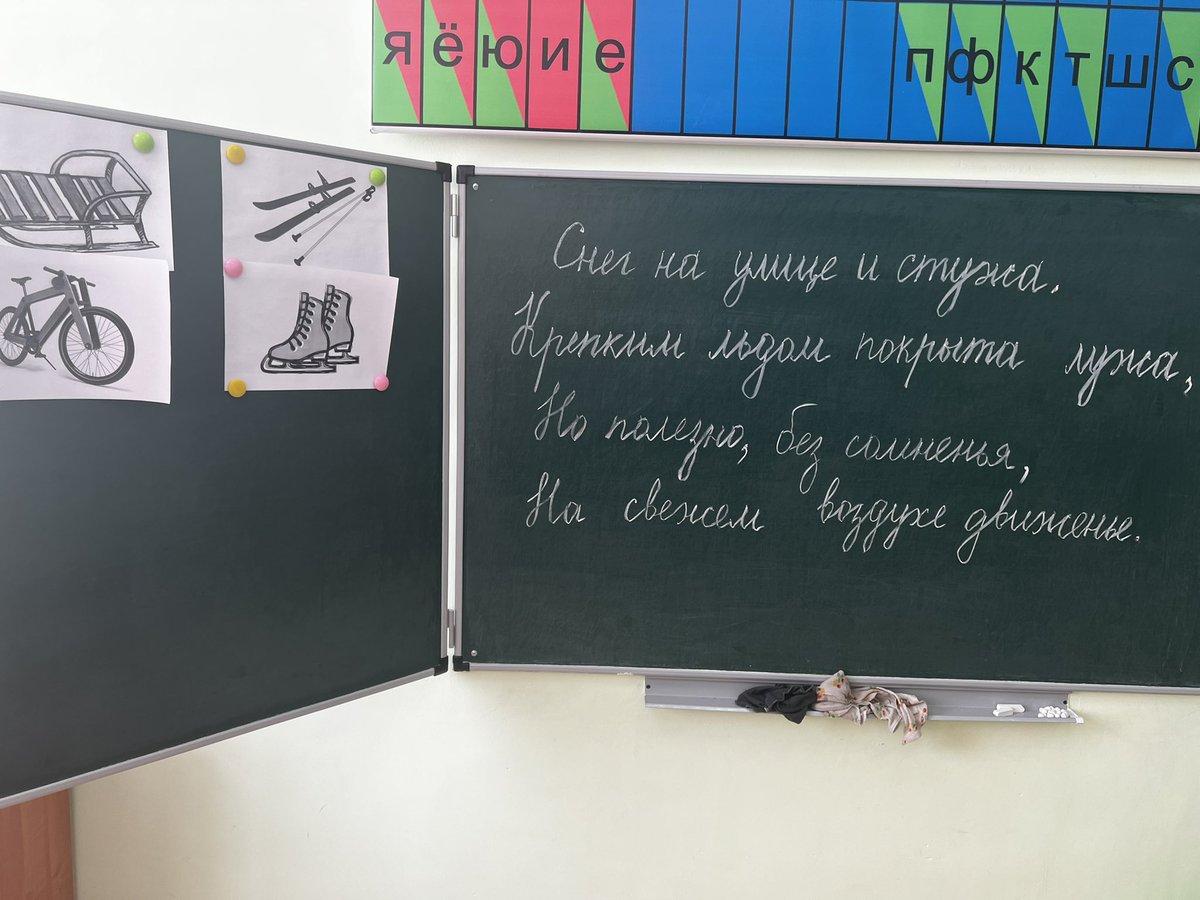 я ё ю и е п ф к т ш с
Снег на улице и стужа.
Крепким льдом покрыта лужа,
Но полезно, без сомненья,
На свежем воздухе движенье.